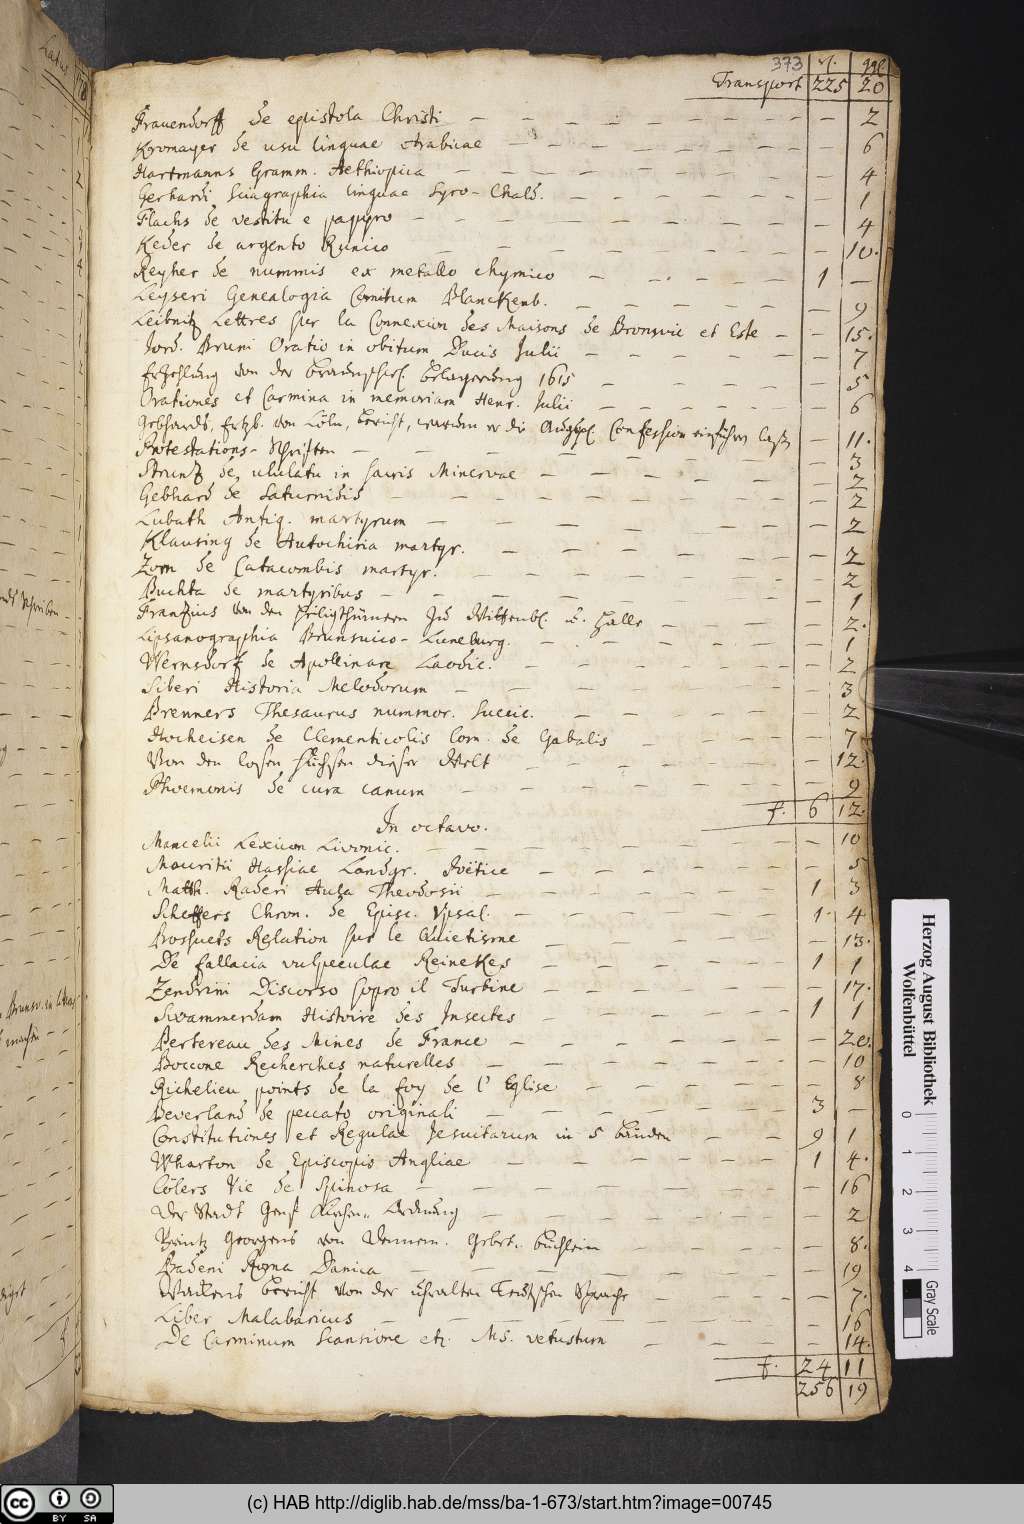 373 rl. ggl
Transport 225 20
Frauendorff de epistola Christi — — 2
Kromayer de usu linguae Arabicae — — 6
Hartmanns Gramm. Aethiopica — — 4
Gerhardi Sciagraphia linguae Syro-Chald. — — 1
Flachs de vestitu e papyro — — 4
Keder de argento Runico — — 10.
Reyher de nummis ex metallo chymico — 1 —
Leyseri Genealogia Comitum Blanckenb. — — 9
Leibnitz Lettres sur la Connexion des Maisons de Bronsvic et Este — — 15.
Jord. Bruni Oratio in obitum Ducis Julii — — 7
Erzehlung von der Braunschw. Belagerung 1615 — — 5
Orationes et Carmina in memoriam Henr. Julii — — 6
Gebhards, Ertzb. von Cöln, Bericht, warum er die Augsp. Confession einführen lasse — 11.
Protestations-Schrifften — — 3
Struntz de ululatu in sacris Minervae — — 2
Gebhard de Saturnidis — — 2
Lubath Antiq. martyrum — — 2
Klausing de Autochiria martyr. — — 2
Zorn de Catacombis martyr. — — 2
Buchta de martyribus — — 1
Franzius von den Heiligthümern zu Wittenb. u. Halle — — 2.
Lipsanographia Brunsuico-Luneburg. — — 1
Wernsdorf de Apollinare Laodic. — — 2
Siberi Historia Melodorum — — 3
Brenners Thesaurus nummor. Suecic. — — 2
Hocheisen de Clementicolis Com. de Gabalis — — 7
Von den losen Füchsen dieser Welt — — 12.
Phoemonis de cura canum — — 9
f. 6 12.
In octavo.
Mancelii Lexicon Livonic. — — 10
Mauritii Hassiae Landgr. Poëtice — — 5
Matth. Raderi Aula Theodosii — 1 3
Scheffers Chron. de Episc. Upsal. — 1. 4.
Bossuets Relation sur le Quietisme — — 13.
De fallacia vulpeculae Reinekes — 1 1
Zendrini Discorso sopro il Turbine — — 17.
Swammerdam Histoire des Insectes — 1 1
Bertereau des Mines de France — — 20.
Boccone Recherches naturelles — — 10
Richelieu points de la foy de l' Eglise — — 8
Beverland de peccato originali — 3 —
Constitutiones et Regulae Jesuitarum in 5 Bänden — 9 1
Wharton de Episcopis Angliae — 1 4.
Colers Vie de Spinosa — — 16
Der Stadt Genf Kirchen-Ordnung — — 2
Printz Georgens von Dennem. Gebet-büchlein — — 8.
Badeni Roma Danica — — 19
Bericht von der uhralten Teutschen Sprache — — 7.
Liber Malabaricus — — 16
De Carminum Scansione etc. Ms. vetustum — — 14.
f. 24 11
256 19
Herzog August Bibliothek
Wolfenbüttel
0 1 2 3 4
Gray Scale
CC BY SA
(c) HAB http://diglib.hab.de/mss/ba-1-673/start.htm?image=00745